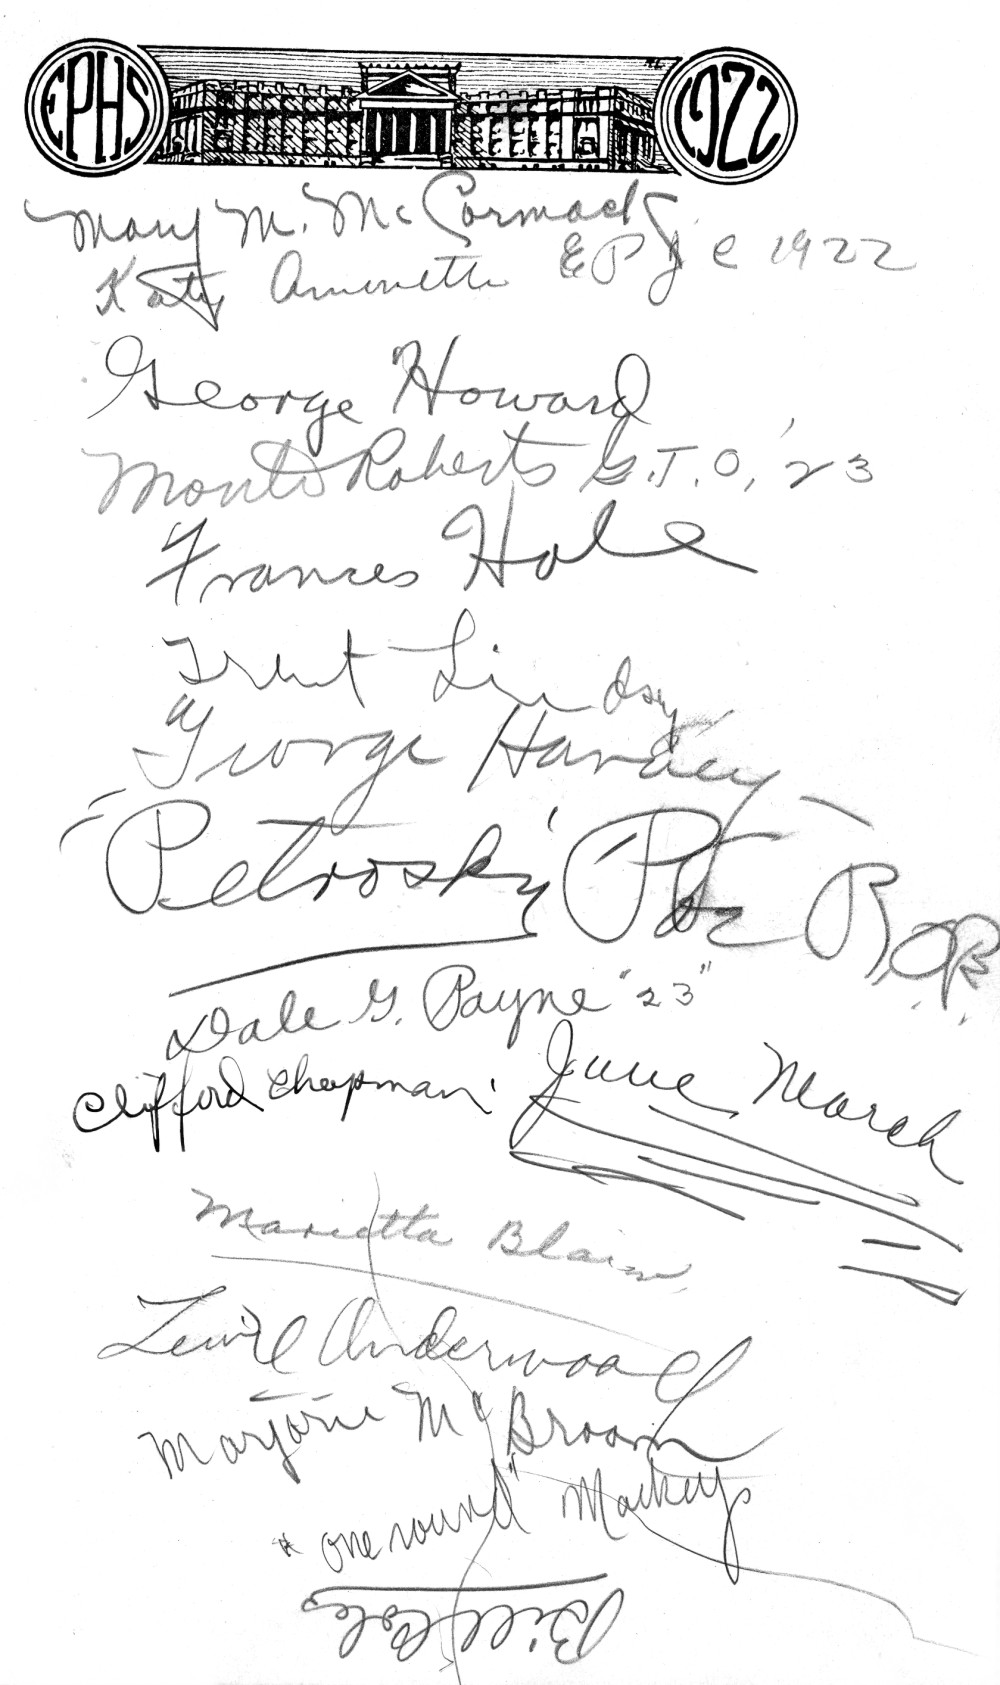 EPHS 1922
Mary M. McCormack
Katy EPJC 1922
George Howard
Monte Roberts G.T.O, '23
Frances Hale
Trent Lindsay
George Harvey
"Petrosky"
Dale G. Payne "23"
Clifford Chapman.
June March
Marietta Blair
Lewie Underwood
Marjorie McBroom
"one round" Mackey
Bill Coles